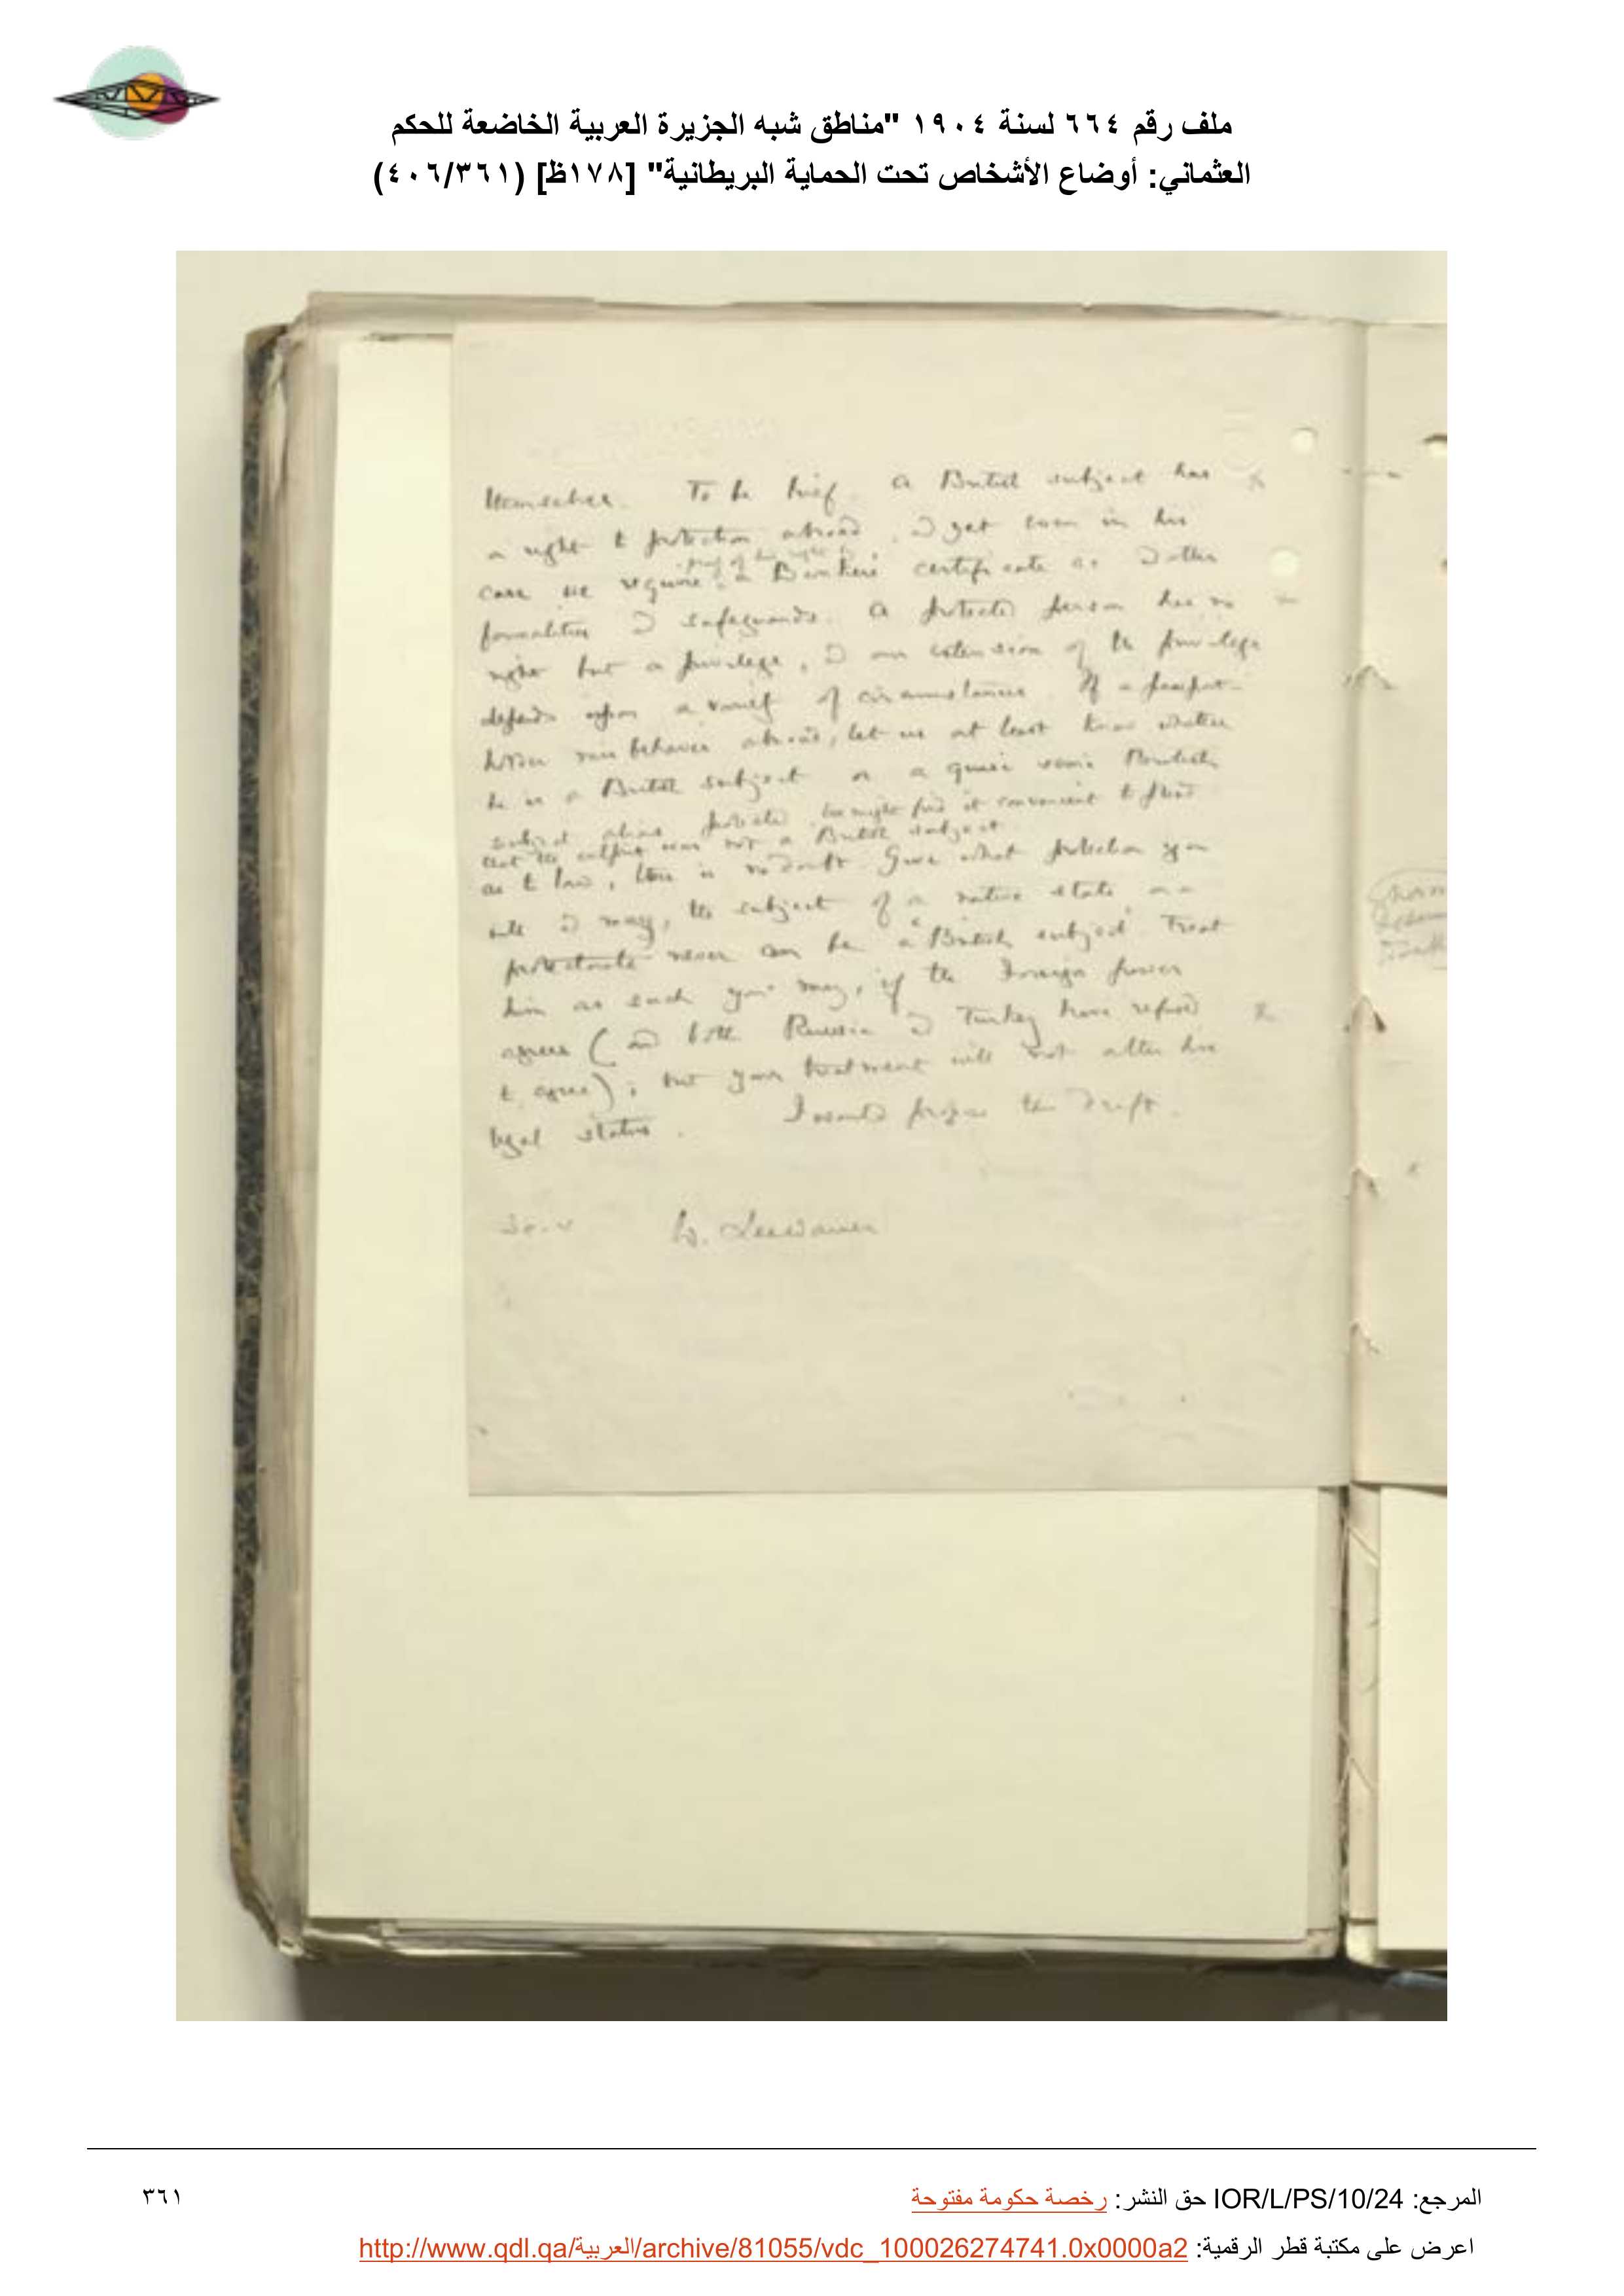 ملف رقم ٦٦٤ لسنة ١٩٠٤ "مناطق شبه الجزيرة العربية الخاضعة للحكم
العثماني: أوضاع الأشخاص تحت الحماية البريطانية" [١٧٨ظ] (٤٠٦/٣٦١)
themselves. To be brief. A British subject has
a right to protection abroad, & yet even in his
proof of his right to
case we require a Bankers' certificate or & other
formalities & safeguards. A protected person has no
right but a privilege, & an extension of the privilege
depends upon a variety of circumstances. If a passport
holder misbehaves abroad, let us at least know whether
he is a British subject or a
subject alias protected. We might find it convenient to plead
that the culprit was not a British subject.
as to law, there is no doubt. Give what protection you
will & may, the subject of a native state or a
protectorate never can be a "British subject". Treat
him as such you may, if the Foreign power
agrees (and both Russia & Turkey have refused
to agree); but your treatment will not alter his
legal status. I would propose the draft.
W. Leewarner
المرجع: IOR/L/PS/10/24 حق النشر: رخصة حكومة مفتوحة
٣٦١
اعرض على مكتبة قطر الرقمية: http://www.qdl.qa/العربية/archive/81055/vdc_100026274741.0x0000a2